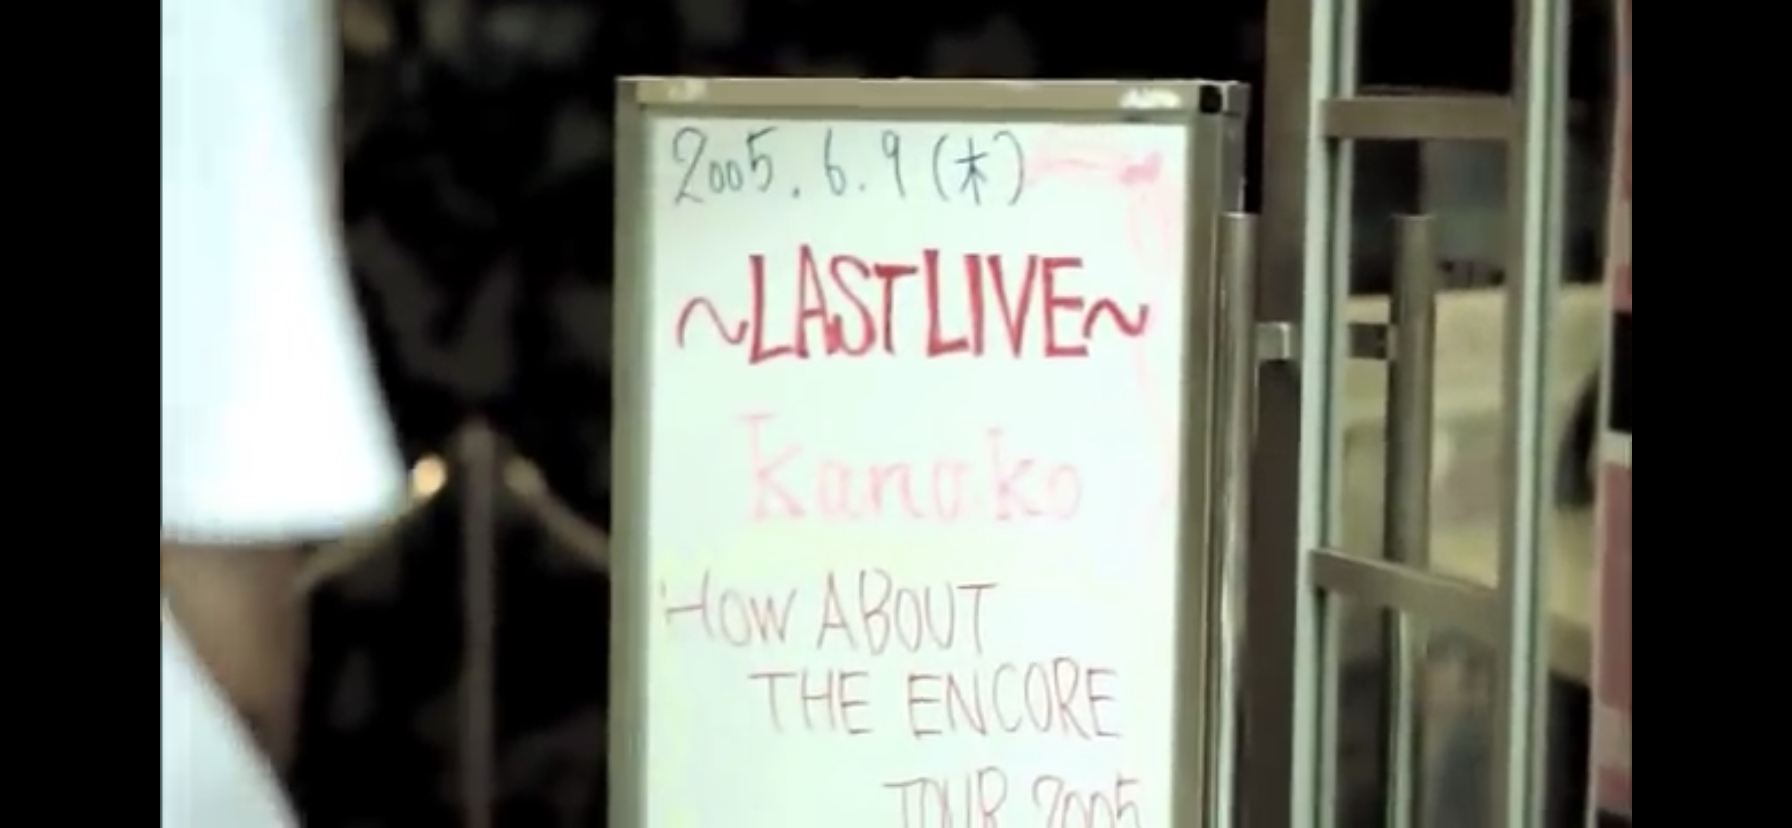 2005.6.9(木)
~LAST LIVE~
Kanako
HOW ABOUT
THE ENCORE
TOUR 2005